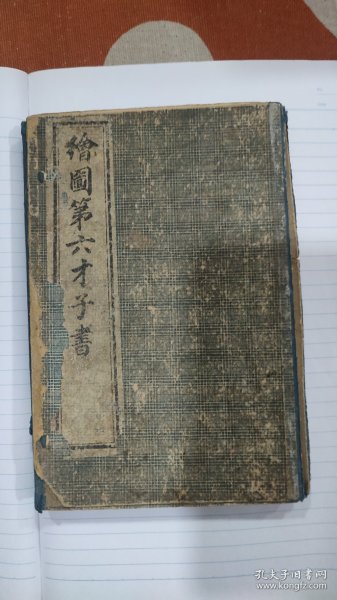 繪圖第六才子書
孔夫子旧书网
www.kongfz.com